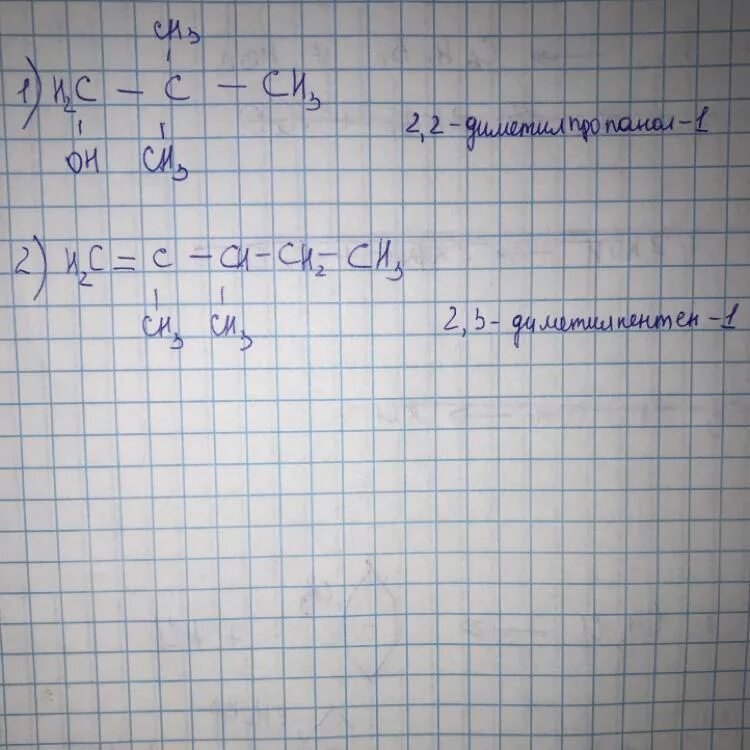 CH3
1) H2C - C - CH3
OH CH3
2,2-диметилпропанол-1
2) H2C = C - CH - CH2 - CH3
CH3 CH3
2,3-диметилпентен-1